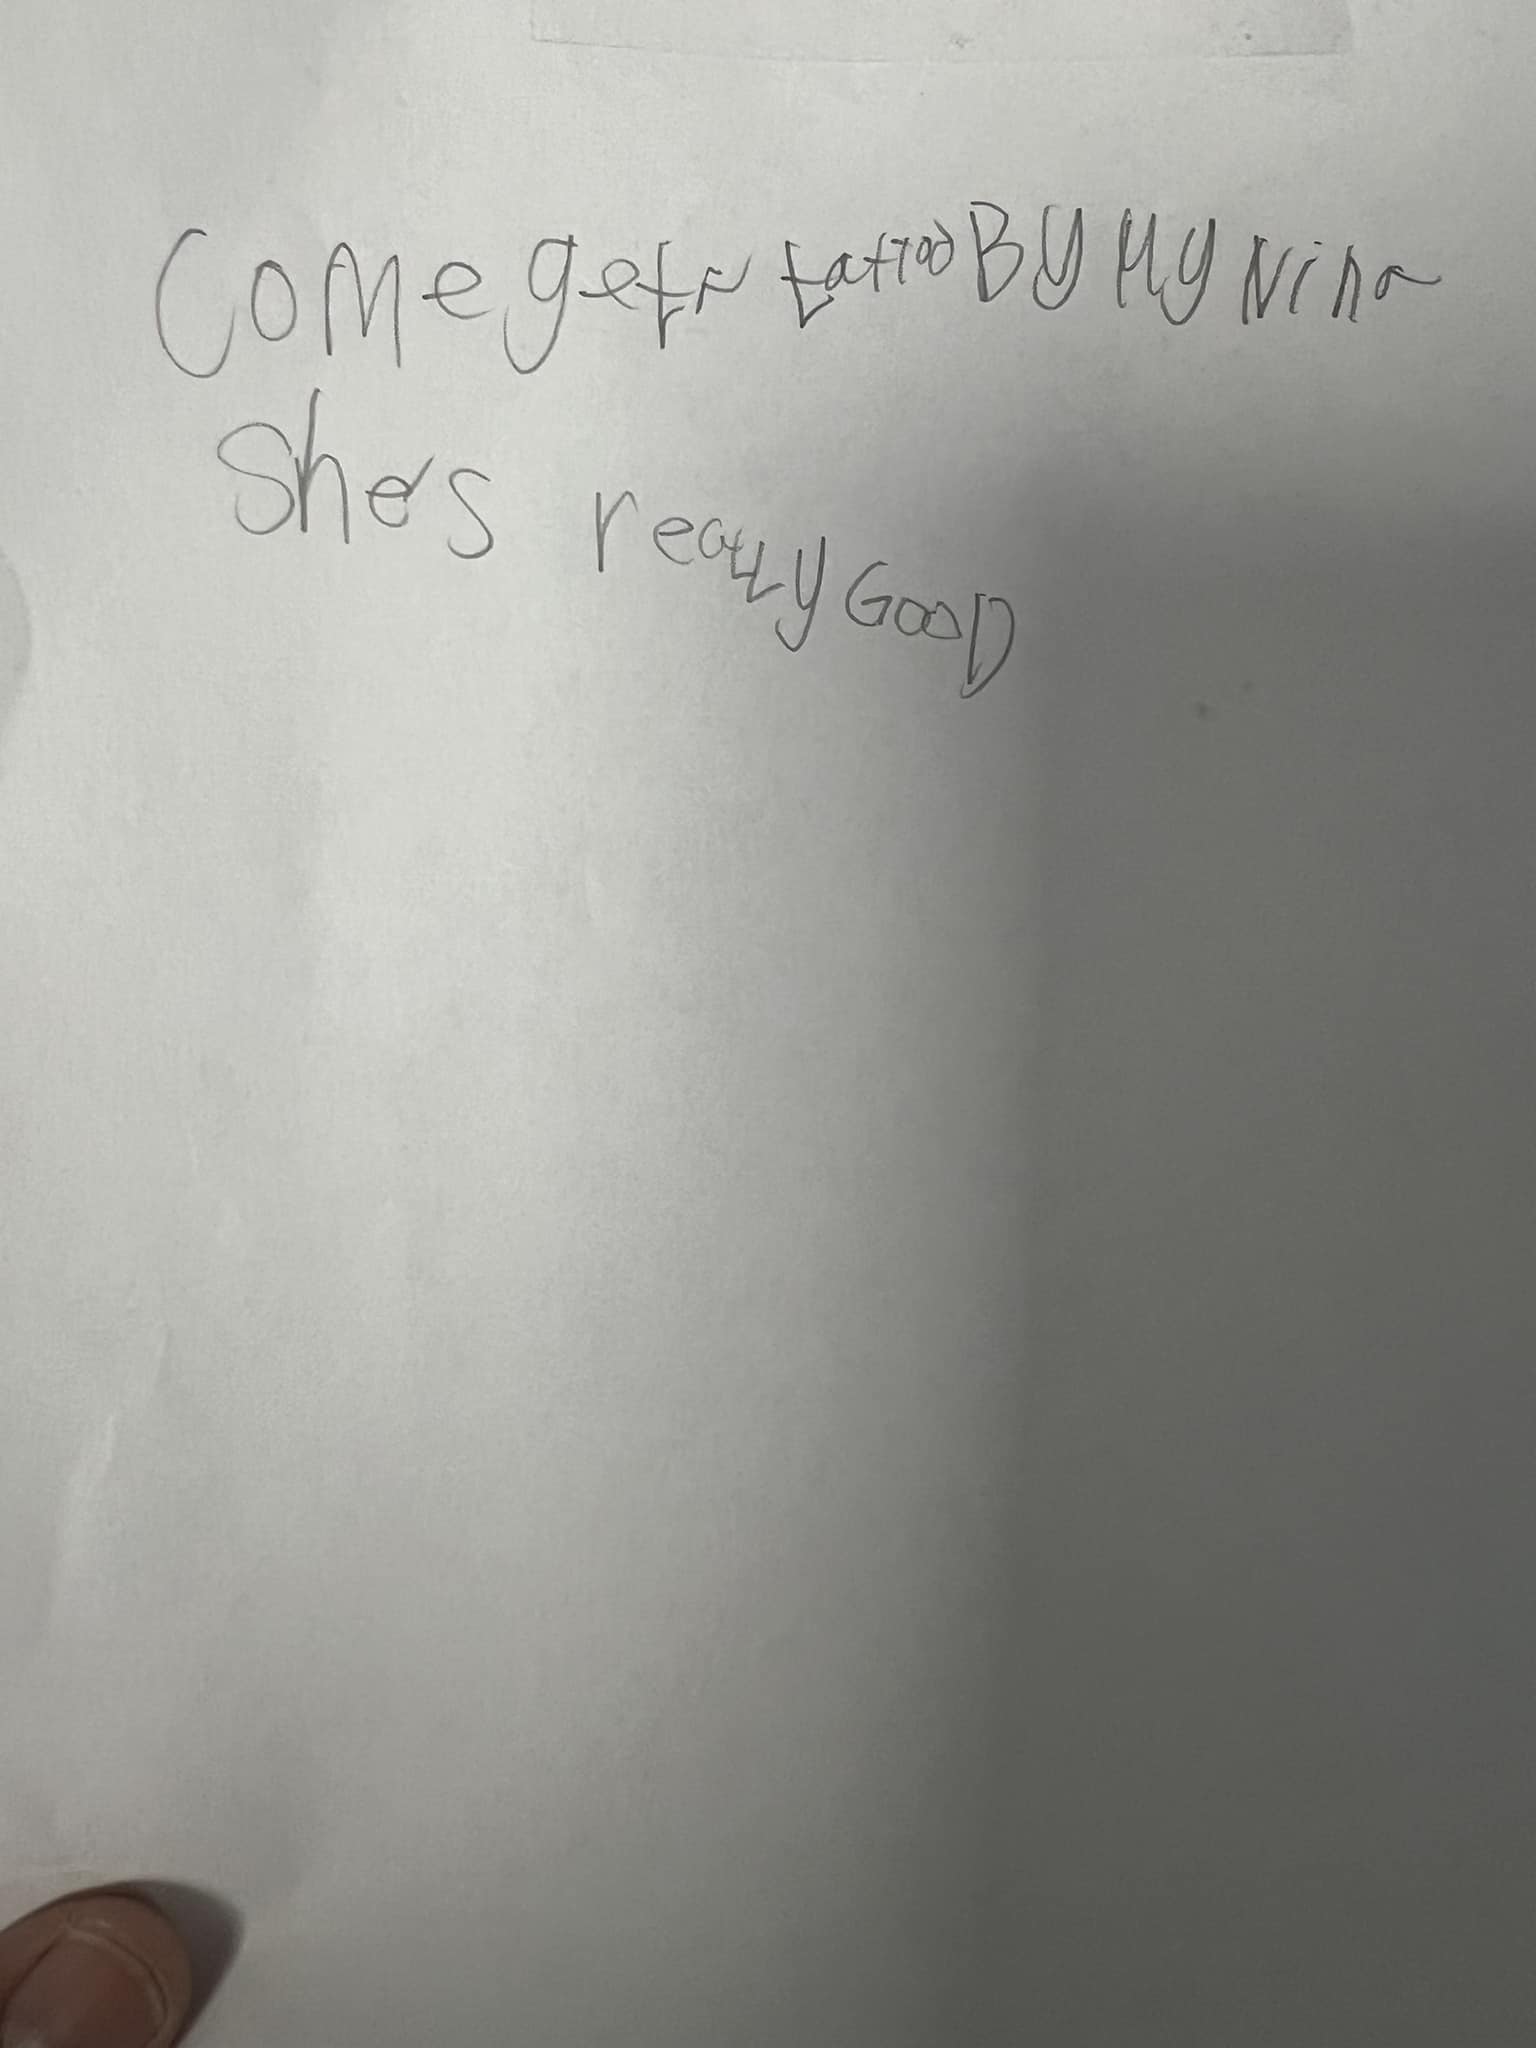 Come get a tattoo By My Nina
She's really GooD